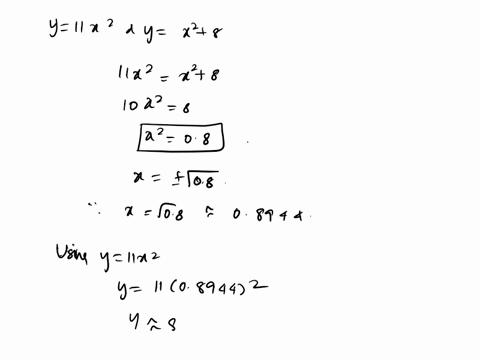 y = 11x² & y = x² + 8
11x² = x² + 8
10x² = 8
x² = 0.8
x = ±√0.8
∴ x = √0.8 ≈ 0.8944
Using y = 11x²
y = 11(0.8944)²
y ≈ 8